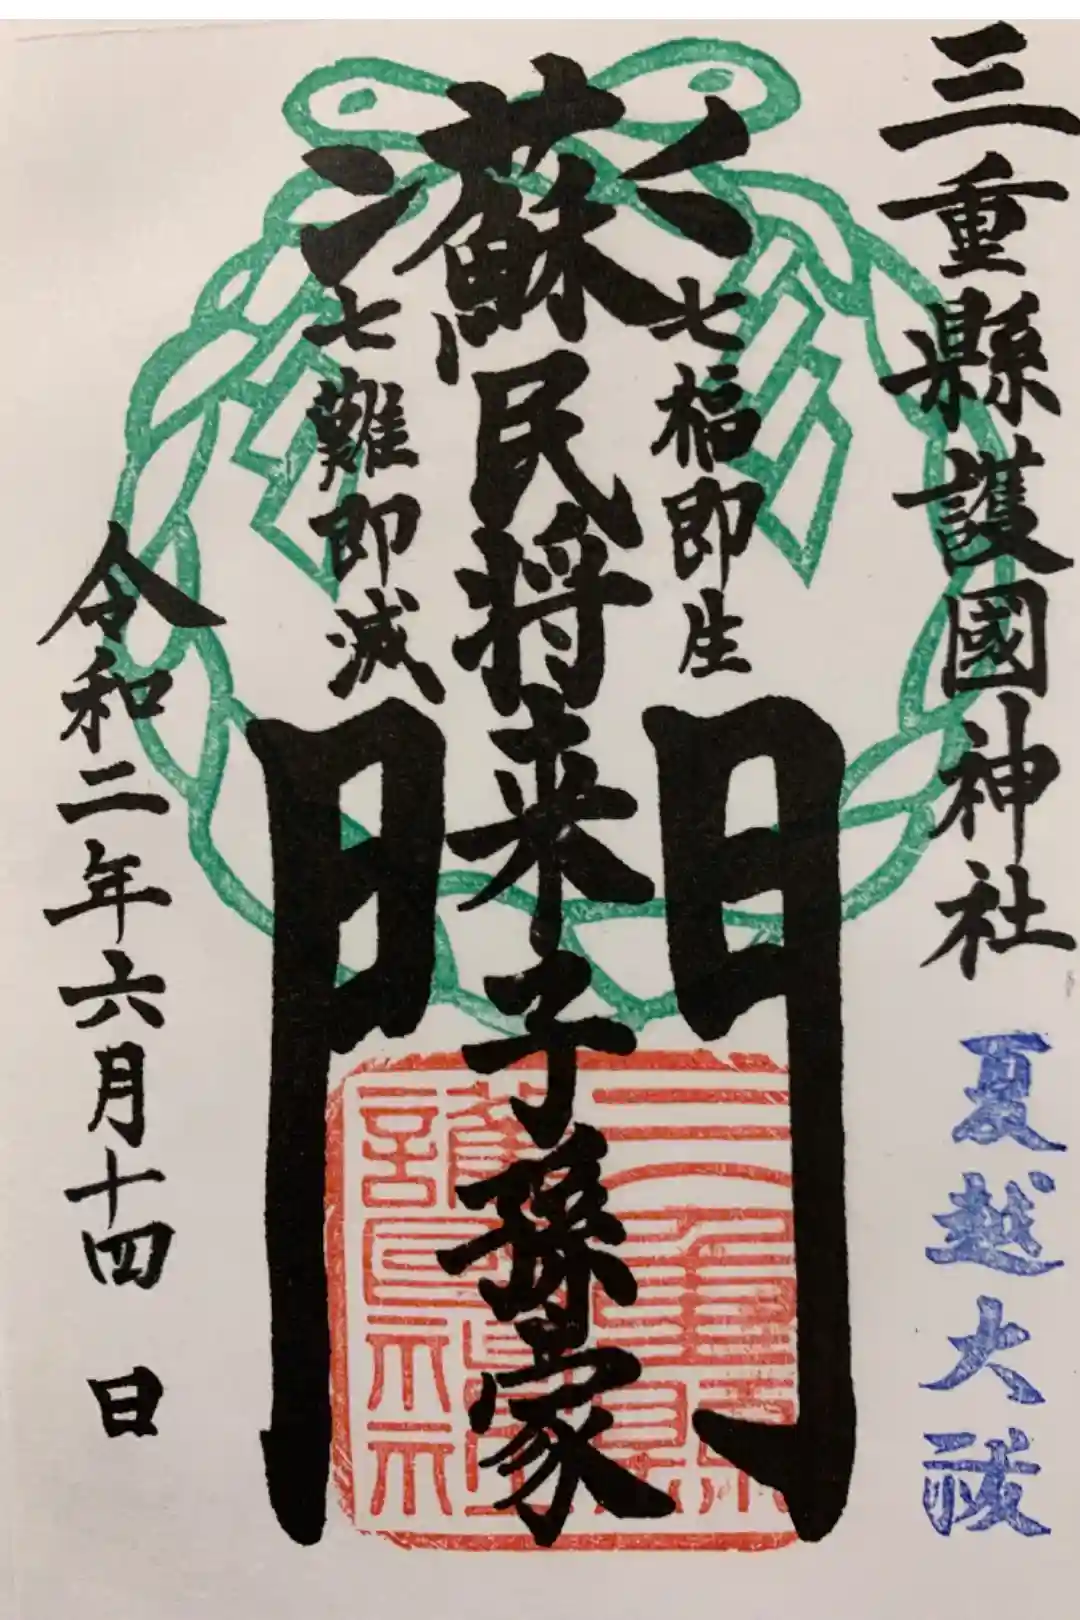 三重縣護國神社
夏越大祓
七福即生
蘇民将来子孫家門
七難即滅
令和二年六月十四日